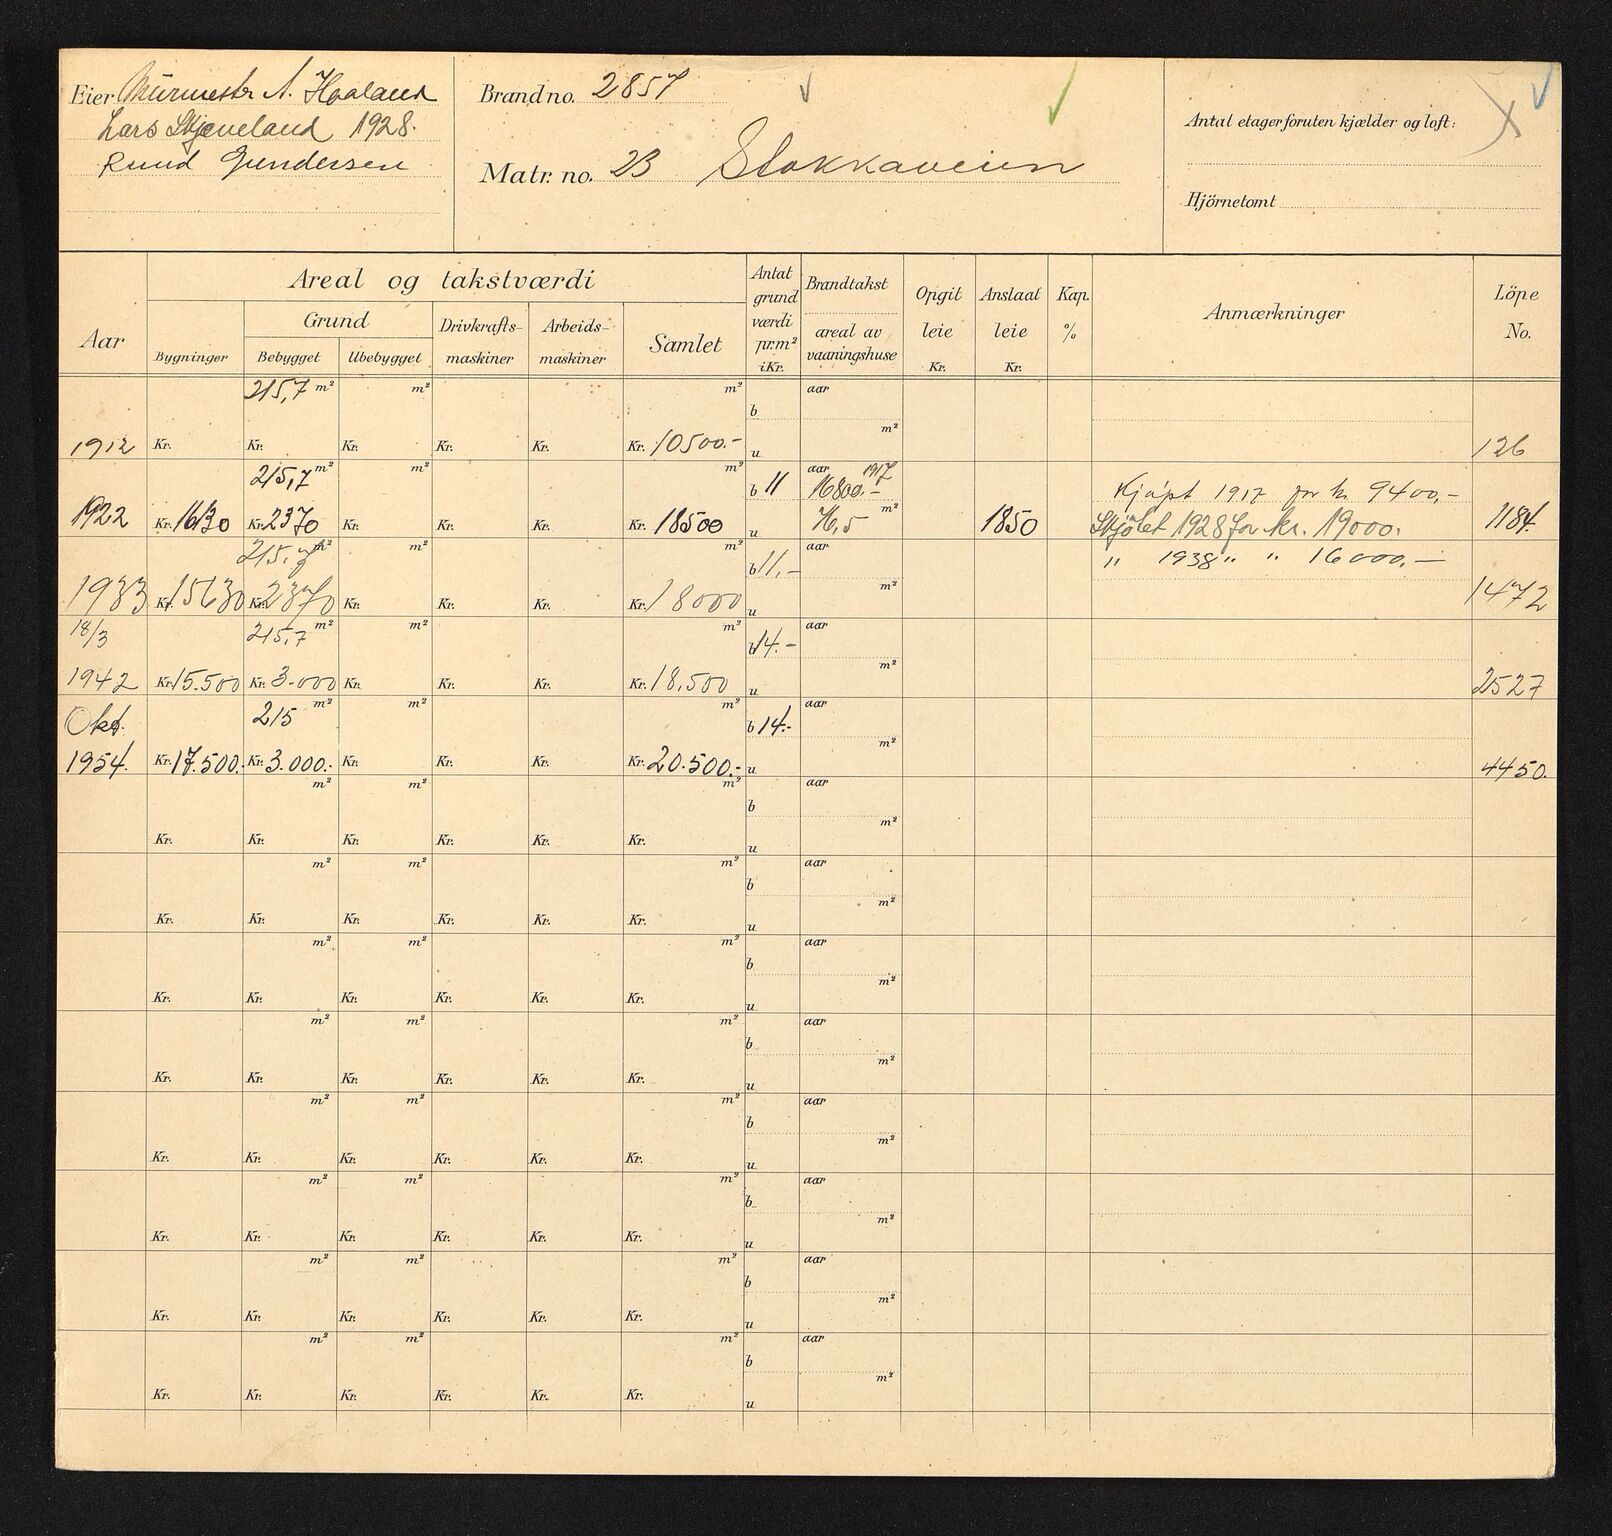 Eier Murmester A. Haaland
Lars Skjæveland 1928.
Knud Gundersen
Brandno. 2857
Matr. no. 2B Stokkaveien
Antal etager foruten kjælder og loft:
Hjörnetomt
Areal og takstværdi
Aar
Bygninger
Grund
Bebygget Ubebygget
Drivkrafts-
maskiner
Arbeids-
maskiner
Samlet
Antat
grund
værdi
pr. m²
i Kr.
Brandtakst
areal av
vaaningshuse
Opgit
leie
Kr.
Anslaat
leie
Kr.
Kap.
%
Anmærkninger
Löpe
No.
215,7 m² m² m² aar
b
m²
1912 Kr. Kr. Kr. Kr. Kr. Kr. 10500.- u 126
215,7 m² m² m² b 11 aar 1917
16800.- Kjøpt 1917 for kr. 9400,-
1922 Kr. Kr. 2370 Kr. Kr. Kr. Kr. 18500 u 76,5 m² 1850 Skjölet 1928 for kr. 19000. 1184.
215,7 m² m² m² b 11,- aar " 1938 " " 16000,-
m²
1933 Kr. 15630 Kr. 2370 Kr. Kr. Kr. Kr. 18000 u 1472
18/3 215,7 m² m² m² b 14.- aar
m²
1942 Kr. 15.500 Kr. 3.000 Kr. Kr. Kr. Kr. 18.500 u 2527
Okt. 215 m² m² m² b 14.- aar
m²
1954. Kr. 17.500.- Kr. 3.000.- Kr. Kr. Kr. Kr. 20.500.- u 4450.
m² m² m² aar
b
m²
Kr. Kr. Kr. Kr. Kr. Kr. u
m² m² m² aar
b
m²
Kr. Kr. Kr. Kr. Kr. Kr. u
m² m² m² aar
b
m²
Kr. Kr. Kr. Kr. Kr. Kr. u
m² m² m² aar
b
m²
Kr. Kr. Kr. Kr. Kr. Kr. u
m² m² m² aar
b
m²
Kr. Kr. Kr. Kr. Kr. Kr. u
m² m² m² aar
b
m²
Kr. Kr. Kr. Kr. Kr. Kr. u
m² m² m² aar
b
m²
Kr. Kr. Kr. Kr. Kr. Kr. u
m² m² m² aar
b
m²
Kr. Kr. Kr. Kr. Kr. Kr. u